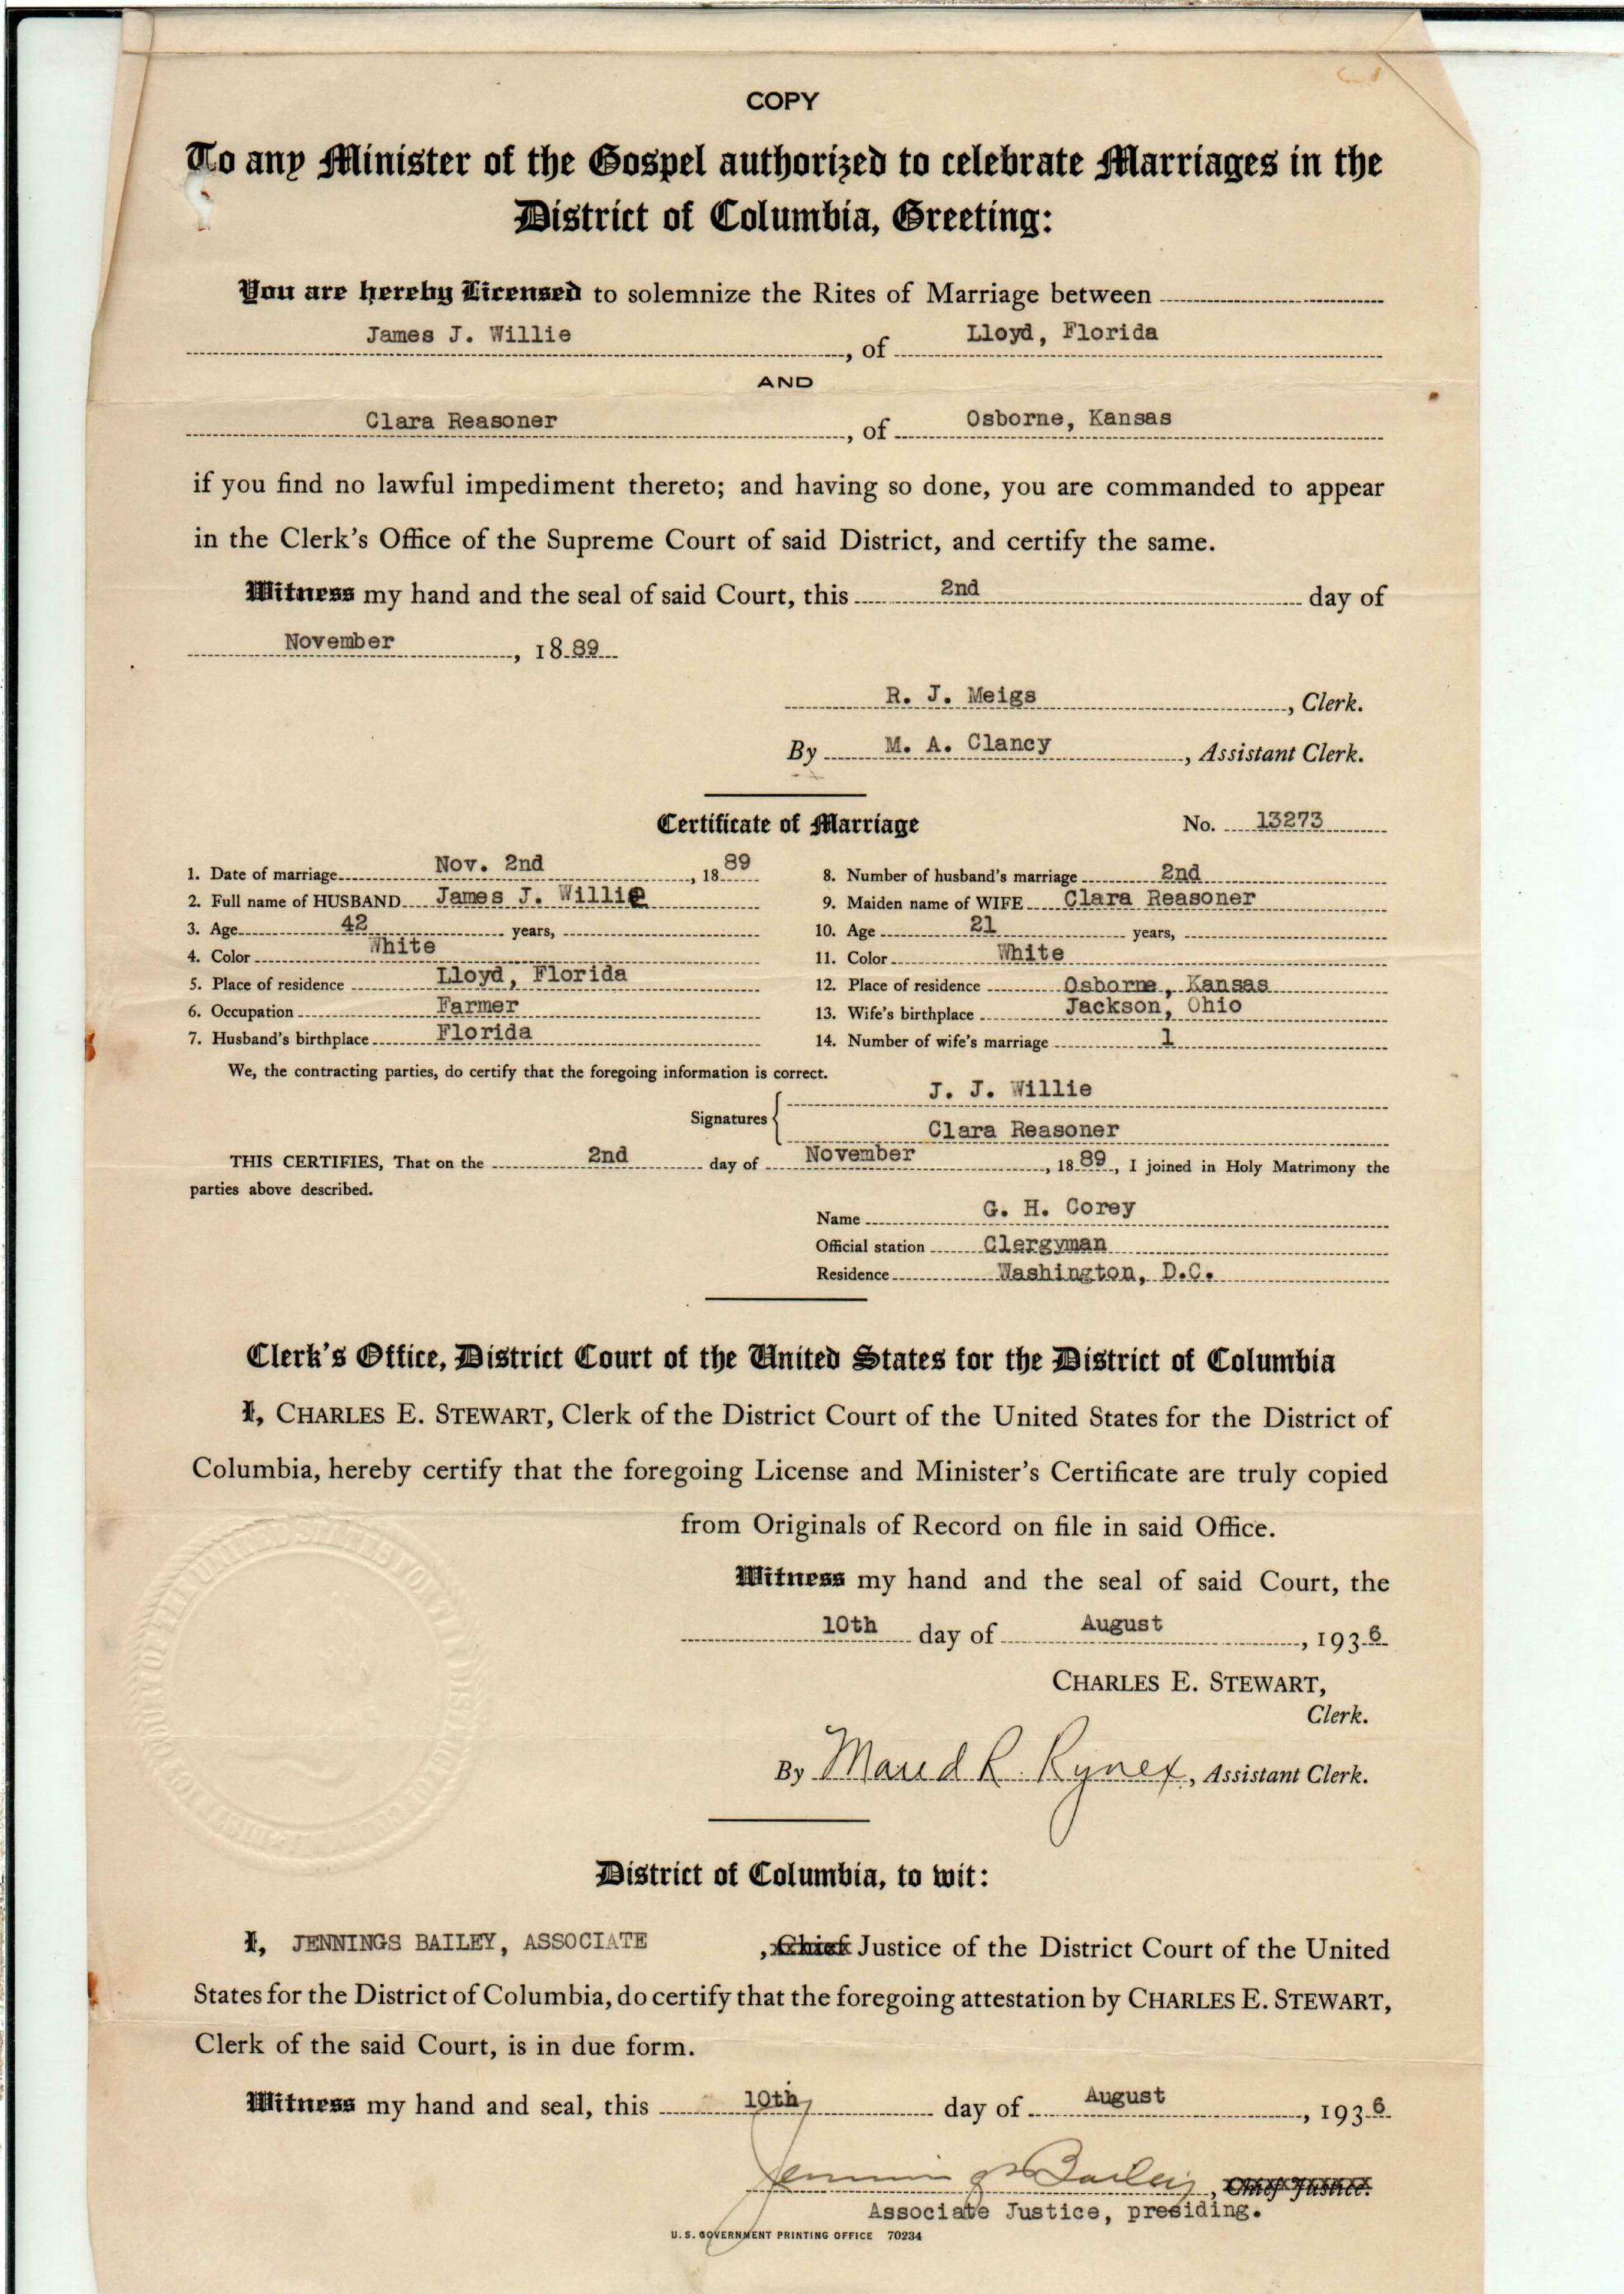 COPY
To any Minister of the Gospel authorized to celebrate Marriages in the
District of Columbia, Greeting:
You are hereby Licensed to solemnize the Rites of Marriage between
James J. Willie, of Lloyd, Florida
AND
Clara Reasoner, of Osborne, Kansas
if you find no lawful impediment thereto; and having so done, you are commanded to appear
in the Clerk's Office of the Supreme Court of said District, and certify the same.
Witness my hand and the seal of said Court, this 2nd day of
November, 1889
R. J. Meigs, Clerk.
By M. A. Clancy, Assistant Clerk.
Certificate of Marriage No. 13273
1. Date of marriage Nov. 2nd, 1889
2. Full name of HUSBAND James J. Willie
3. Age 42 years,
4. Color White
5. Place of residence Lloyd, Florida
6. Occupation Farmer
7. Husband's birthplace Florida
8. Number of husband's marriage 2nd
9. Maiden name of WIFE Clara Reasoner
10. Age 21 years,
11. Color White
12. Place of residence Osborne, Kansas
13. Wife's birthplace Jackson, Ohio
14. Number of wife's marriage 1
We, the contracting parties, do certify that the foregoing information is correct.
Signatures { J. J. Willie
Clara Reasoner
THIS CERTIFIES, That on the 2nd day of November, 1889, I joined in Holy Matrimony the
parties above described.
Name G. H. Corey
Official station Clergyman
Residence Washington, D.C.
Clerk's Office, District Court of the United States for the District of Columbia
I, CHARLES E. STEWART, Clerk of the District Court of the United States for the District of
Columbia, hereby certify that the foregoing License and Minister's Certificate are truly copied
from Originals of Record on file in said Office.
Witness my hand and the seal of said Court, the
10th day of August, 1936
CHARLES E. STEWART,
Clerk.
By Maud R. Rynex, Assistant Clerk.
District of Columbia, to wit:
I, JENNINGS BAILEY, ASSOCIATE, Chief Justice of the District Court of the United
States for the District of Columbia, do certify that the foregoing attestation by CHARLES E. STEWART,
Clerk of the said Court, is in due form.
Witness my hand and seal, this 10th day of August, 1936
Jennings Bailey, Chief Justice.
Associate Justice, presiding.
U. S. GOVERNMENT PRINTING OFFICE 70234